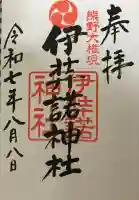 奉拝
熊野大権現
伊弉諾神社
伊弉諾神社
令和七年八月八日